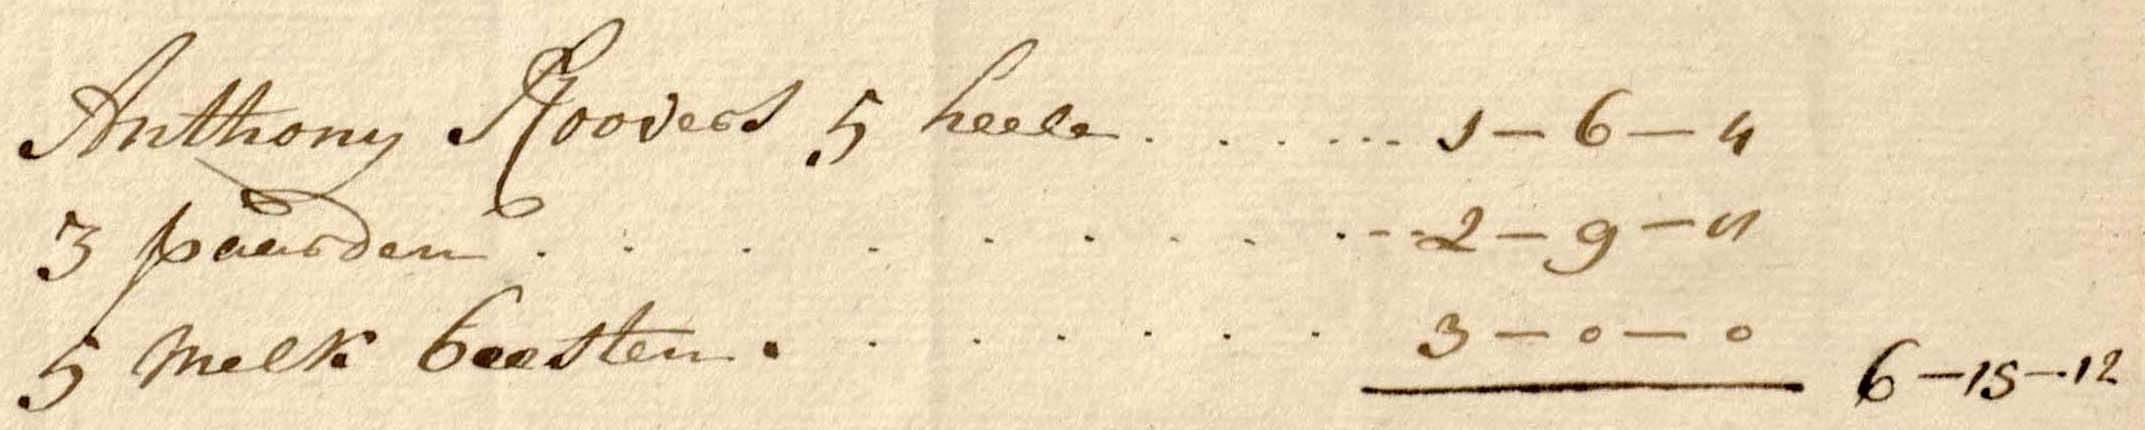 Anthony Roovers 5 heele . . . . . . . . 1 – 6 – 4
3 paarden . . . . . . . . . . . 2 – 9 – 8
5 melk beesten . . . . . . . 3 – 0 – 0
6 – 15 – 12